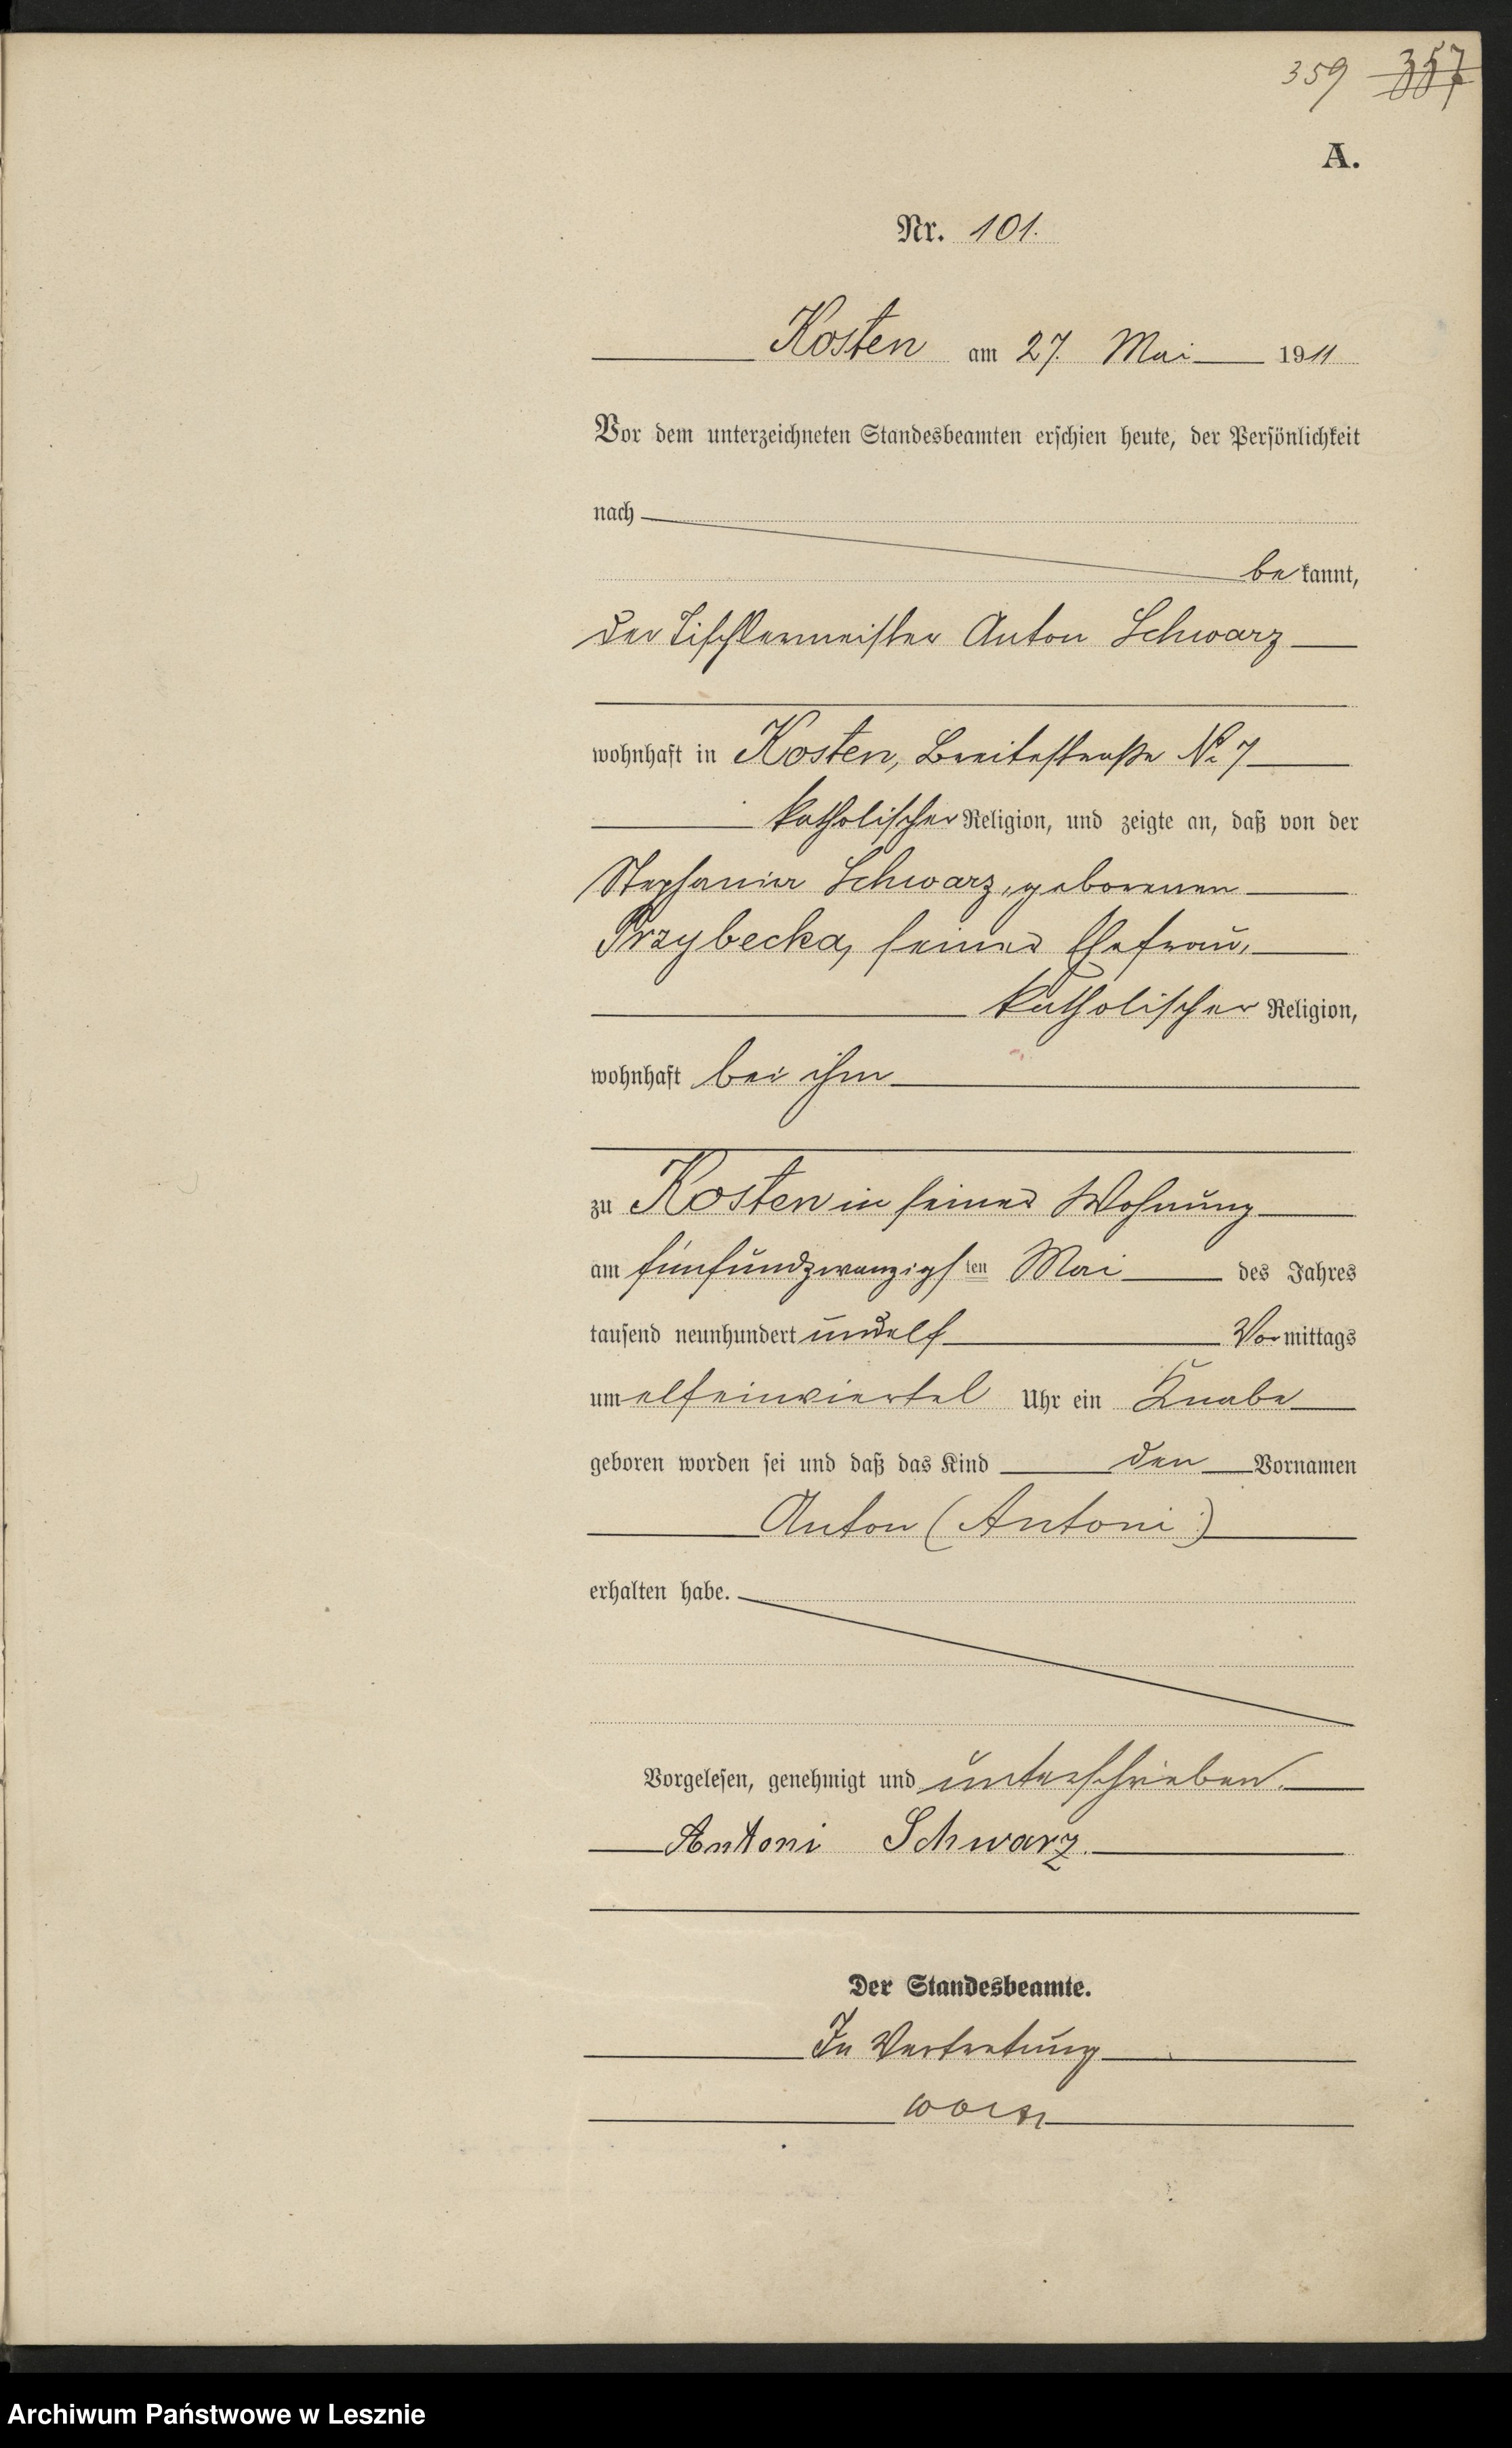 359 357
A.
Nr. 101.
Kosten am 27. Mai 1911
Vor dem unterzeichneten Standesbeamten erschien heute, der Persönlichkeit
nach
bekannt,
der Tischlermeister Anton Schwarz
wohnhaft in Kosten, Breitestraße No 7
katholischer Religion, und zeigte an, daß von der
Stephania Schwarz, geborenen
Przybecka, seiner Ehefrau,
katholischer Religion,
wohnhaft bei ihm
zu Kosten in seiner Wohnung
am fünfundzwanzigsten Mai des Jahres
tausend neunhundert undelf Vormittags
um elfeinviertel Uhr ein Knabe
geboren worden sei und daß das Kind den Vornamen
Anton (Antoni)
erhalten habe.
Vorgelesen, genehmigt und unterschrieben.
Antoni Schwarz.
Der Standesbeamte.
In Vertretung
Archiwum Państwowe w Lesznie